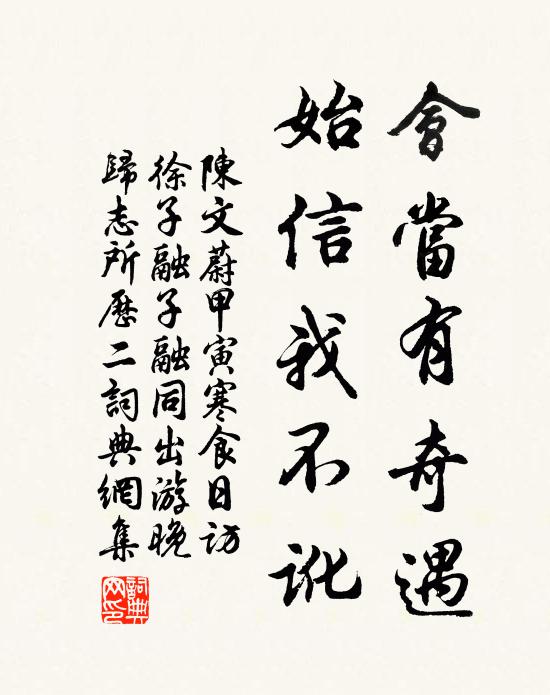 會當有奇遇
始信我不訛
陳文蔚甲寅寒食日访
徐子融子融同出游晚
歸志所歷二詞典網集
詞典網印